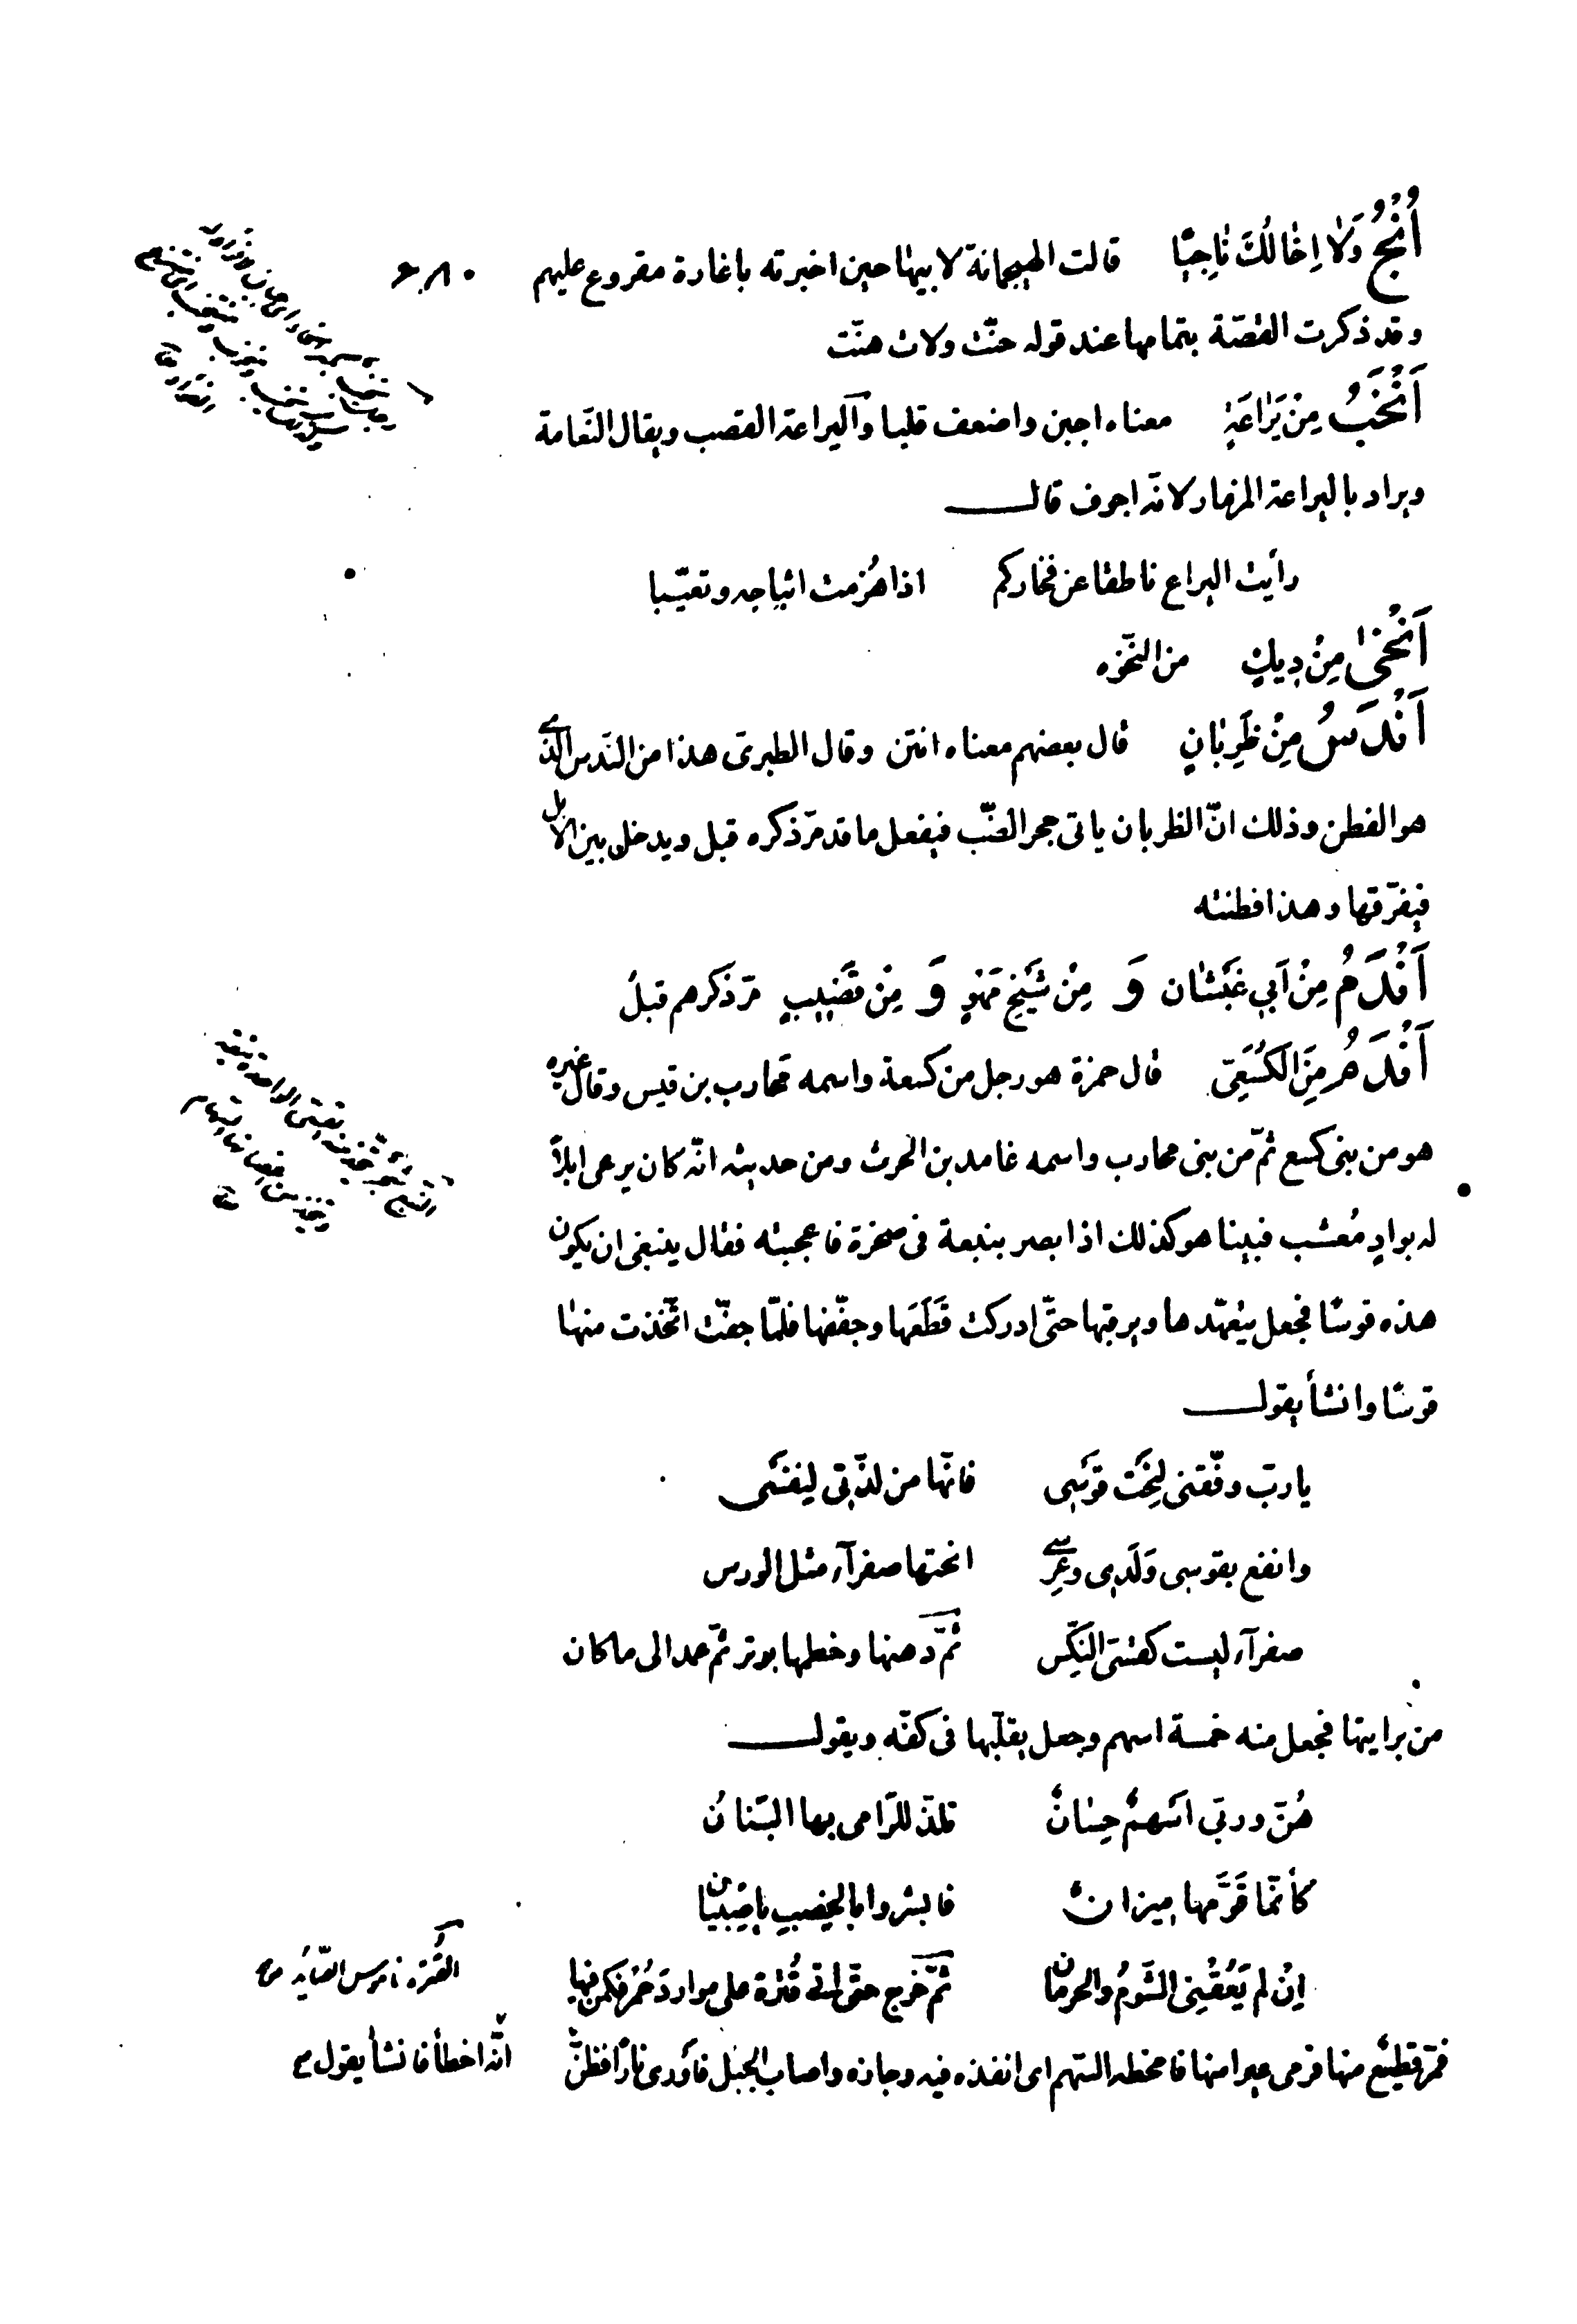 اُنْجُ وَلَا اِخَالُكَ نَاجِيًا قالت الهيجمانة لابيها حين اخبرته باغارة مقروع عليهم
وقد ذكرت القصّة بتمامها عند قوله حنّت ولات هنّت
اَنْخَبُ مِنْ يَرَاعَةٍ معناه اجبن واضعف قلبا واليراعة القصب ويقال النّعامة
ويراد باليراعة المزمار لانّه اجوف قال
رأيت اليراع ناطقا عن فخاركم اذا هُزمت اثباجه وتعيّبا
اَنْخٰى مِنْ دِيكٍ من النّخوه
اَنْدَسُ مِنْ ظَرِبَانٍ قال بعضهم معناه انتن وقال الطبرىّ هذا من النّدس الّذى
هو الفطن وذلك انّ الظربان ياتى جحر الضّبّ فيفعل ما قد مرّ ذكره قبل ويدخل بين الابل
فيفرّقها وهذا فطنته
اَنْدَمُ مِنْ اَبِى غَبْشَان وَ مِنْ شَيْخِ مَهْوٍ وَ مِنْ قَضِيبٍ مرّ ذكرهم قبلُ
اَنْدَمُ مِنَ الْكُسَعِىِّ قال حمزة هو رجل من كسعة واسمه محارب بن قيس وقال غيره
هو من بنى كسع ثمّ من بنى محارب واسمه غامد بن الحرث ومن حديثه انّه كان يرعى ابلاً
له بوادٍ مُعشب فبينا هو كذلك اذا بصر بنبعة فى صخرة فاعجبته فقال ينبغى ان يكون
هذه قوسًا فجعل يتعهّدها ويرقبها حتّى ادركت قَطَعَها وجفّفها فلمّا جفّت اتّخذت منها
قوسًا وانشأ يقول
يا ربّ وفّقنى لِنَحْت قَوْسِى فانّها من لذّتى لِنفسى
وانفع بقوسى وَلَدى وعِرسى انحتها صفرآء مثل الورس
صفرآء ليست كقسىّ النِّكس ثمّ دهنها وخطمها بوتر ثمّ عمد الى ما كان
من برايتها فجعل منه خمسة اسهم وجعل يقلّبها فى كفّه ويقول
هُنّ وربّى اسهمٌ حِسَانٌ تلذّ للرّامى بها البَنانُ
كأنّما قَوَّمها ميزانٌ فابشروا بالخِصبِ يا صِبْيَان
اِنْ لم يَعُقْنِى الشّومُ والحرمان ثمّ خرج حتّى اتى قُترة على موارد حُمُر فكمن فيها
القُتره ناموس الصّايد
فمرّ قطيع منها فرمى عيرا منها فامخطه السّهم اى انفذه فيه وجازه واصاب الجبل فأورى نارًا فظنّ انّه اخطأ فانشأ يقول